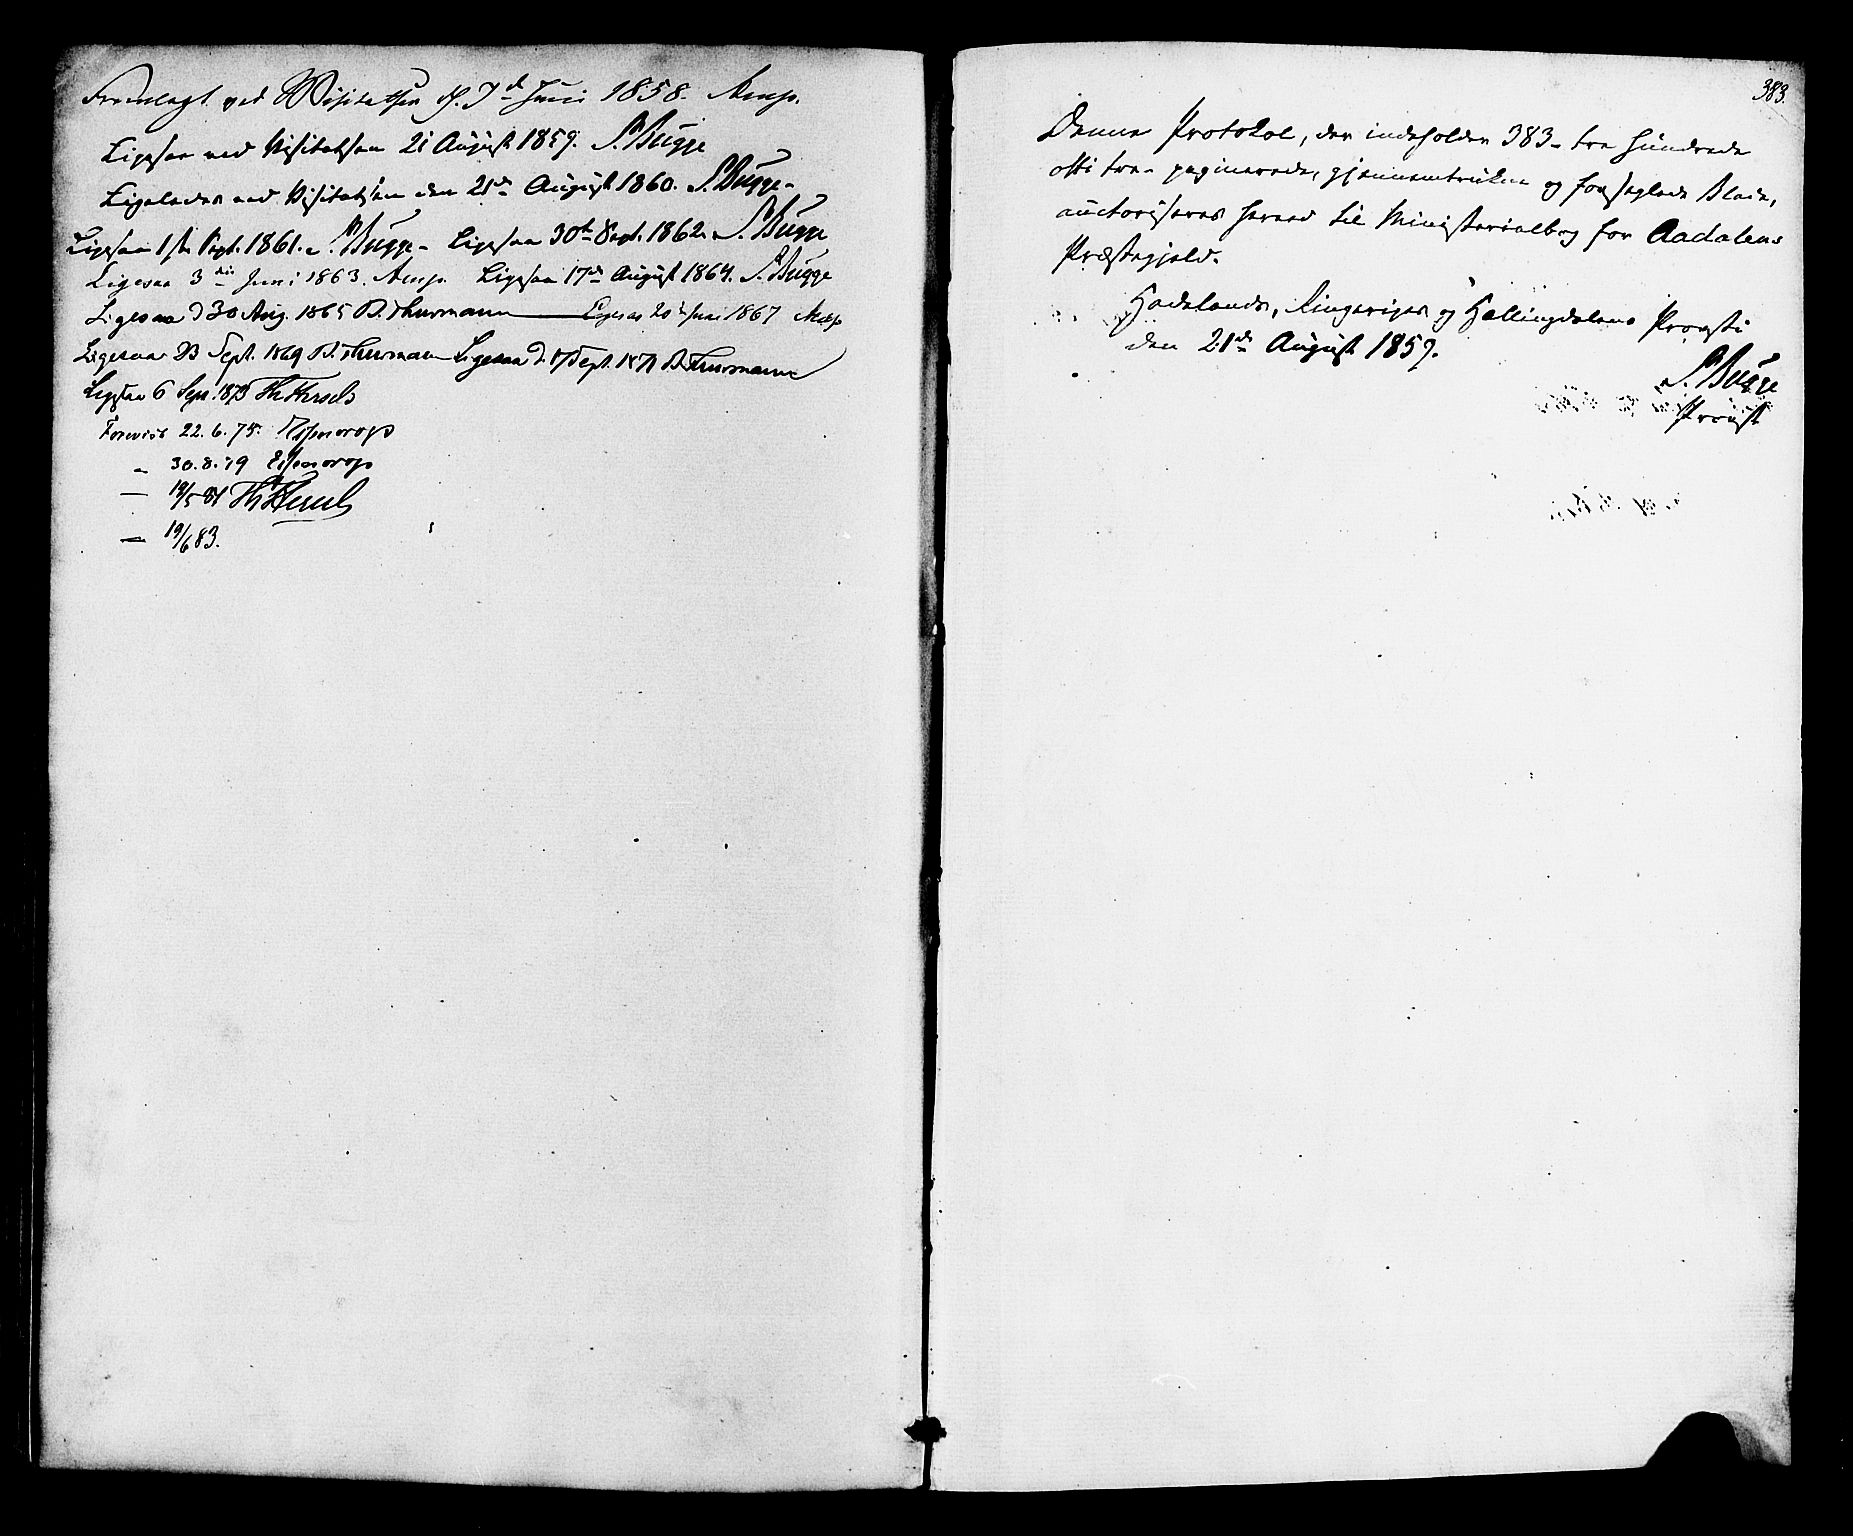 Fremlagt ved Visitatsen d. 7d Juni 1858. Arup.
Ligesaa ved Visitatsen 21 August 1859. S. Bugge
Ligeledes ved Visitatsen den 21de August 1860. S. Bugge
Ligesaa 1ste Sept. 1861. S. Bugge - Ligesaa 30te Sept. 1862. S. Bugge
Ligesaa 3die Juni 1863. Arup. Ligesaa 17de August 1864. S. Bugge
Ligesaa d 30 Aug. 1865 B. Thurmann Ligesaa 20 Juni 1867 Arup
Ligesaa 23 Sept. 1869 B. Thurmann Ligesaa d. 17 Sept. 1871 B. Thurmann
Ligesaa 6 Sept. 1873 Th. Kierulf
Forevist 22.6.75. Essendrop
„ 30.8.79 Essendrop
— 18/5 81
— 19/6 83.
383.
Denne Protokol, der indeholder 383 - tre hundrede
otti tre - paginerede, gjennemtrukne og forseglede Blade,
auctoriseres herved til Ministerialbog for Aadalens
Præstegjeld.
Hadelands, Ringeriges og Hallingdalens Provsti
den 21de August 1859.
S. Bugge
Provst